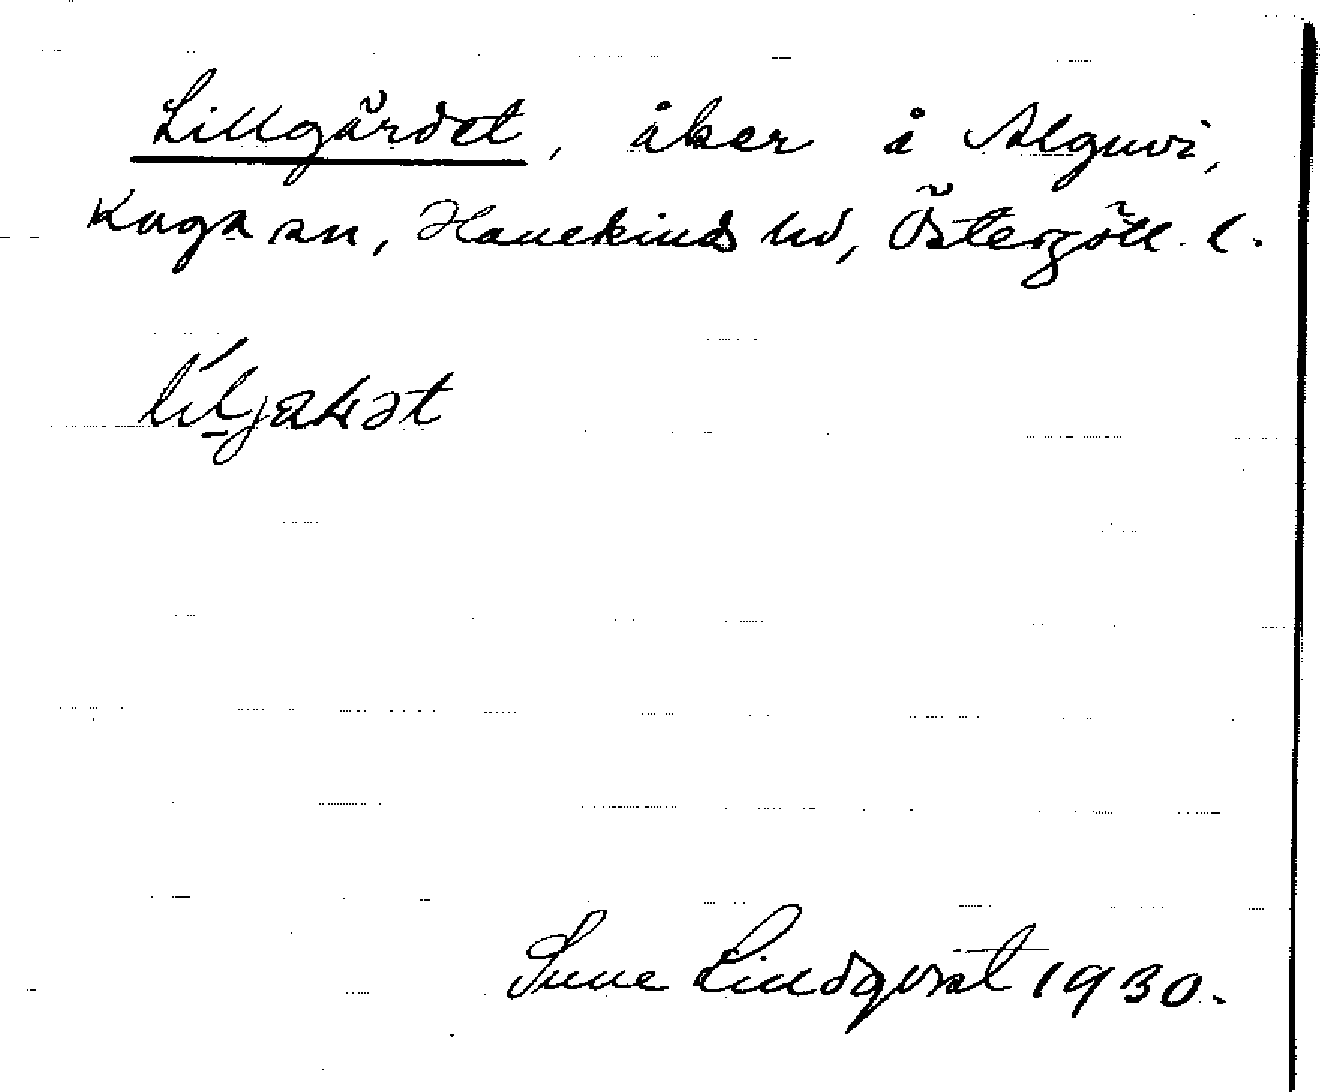 Lillgärdet, åker å Alguvi,
Kaga sn, Hanekinds hd, Östergötl. l.
Sune Lindqvist 1930.